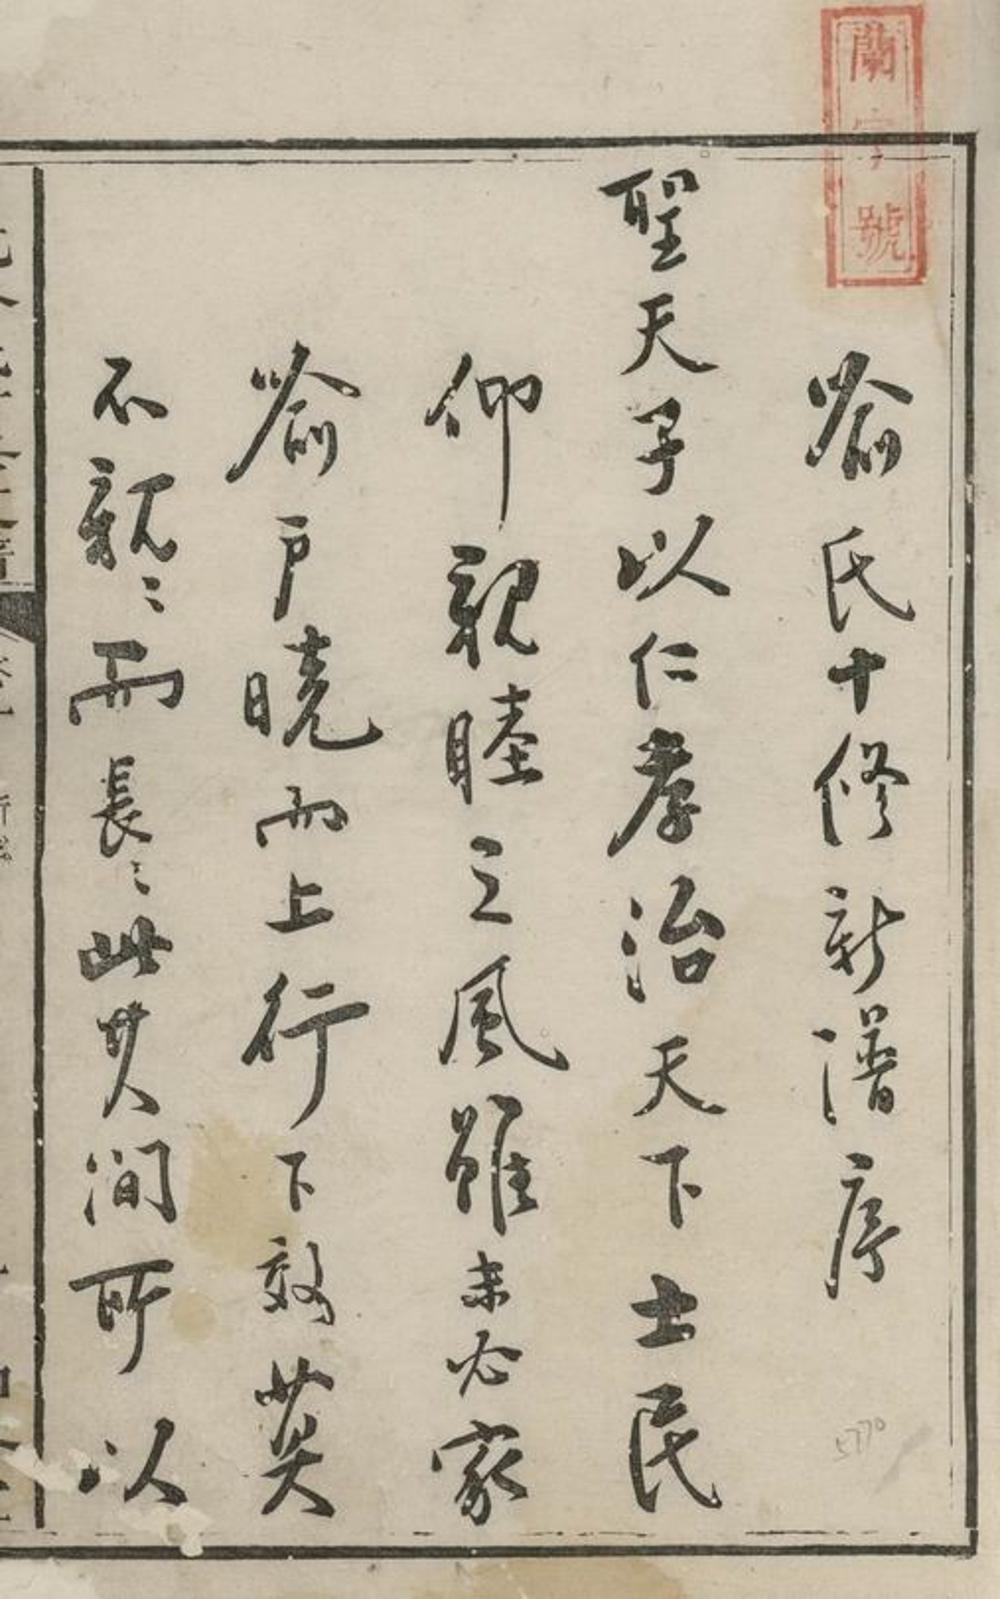 蘭字號
喻氏十修新譜序
聖天子以仁孝治天下士民
仰親睦之風雖未必家
喻戶曉而上行下效莫
不親〻而長〻此其間所以
5770